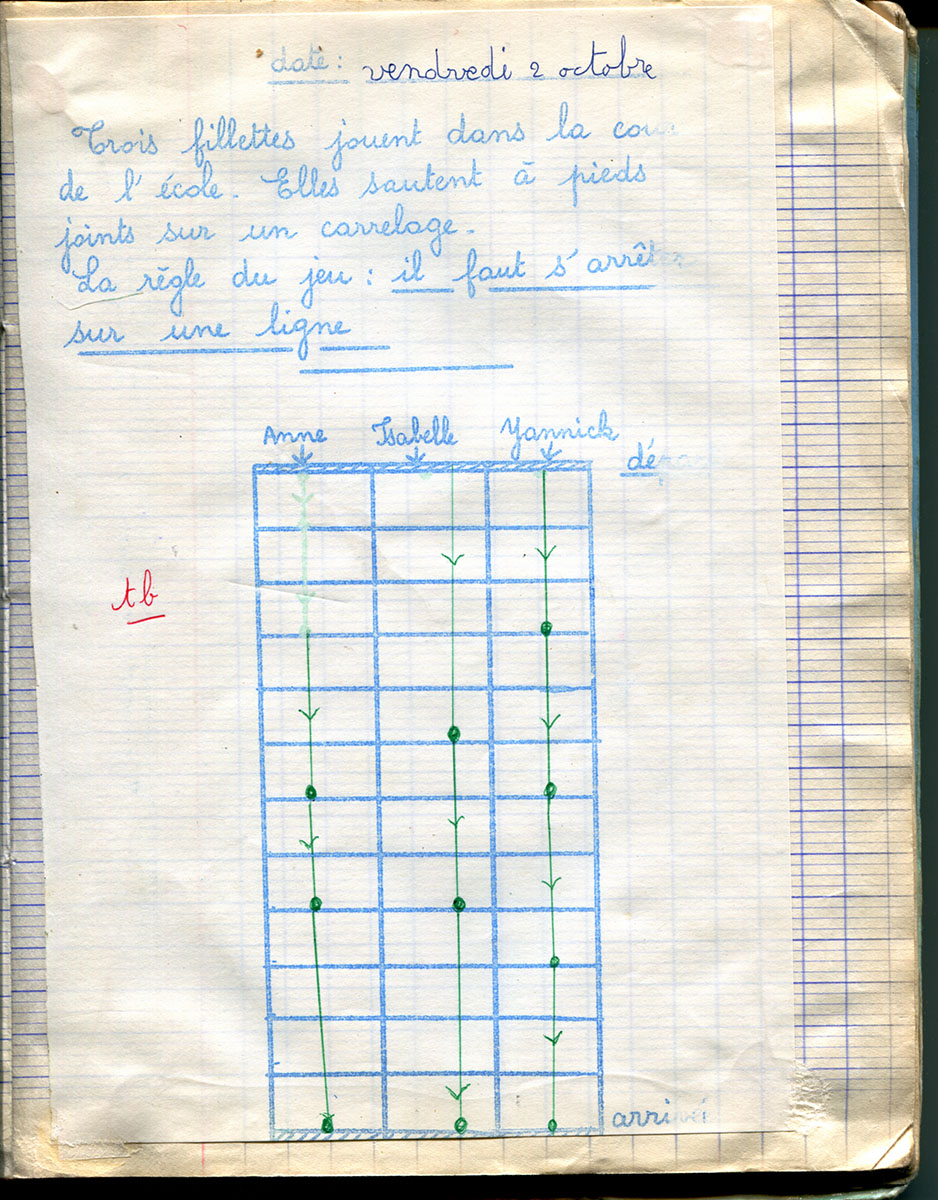 date: vendredi 2 octobre
Trois fillettes jouent dans la cour
de l'école. Elles sautent à pieds
joints sur un carrelage.
La règle du jeu : il faut s'arrêter
sur une ligne
Anne Isabelle Yannick
départ
tb
arrivée